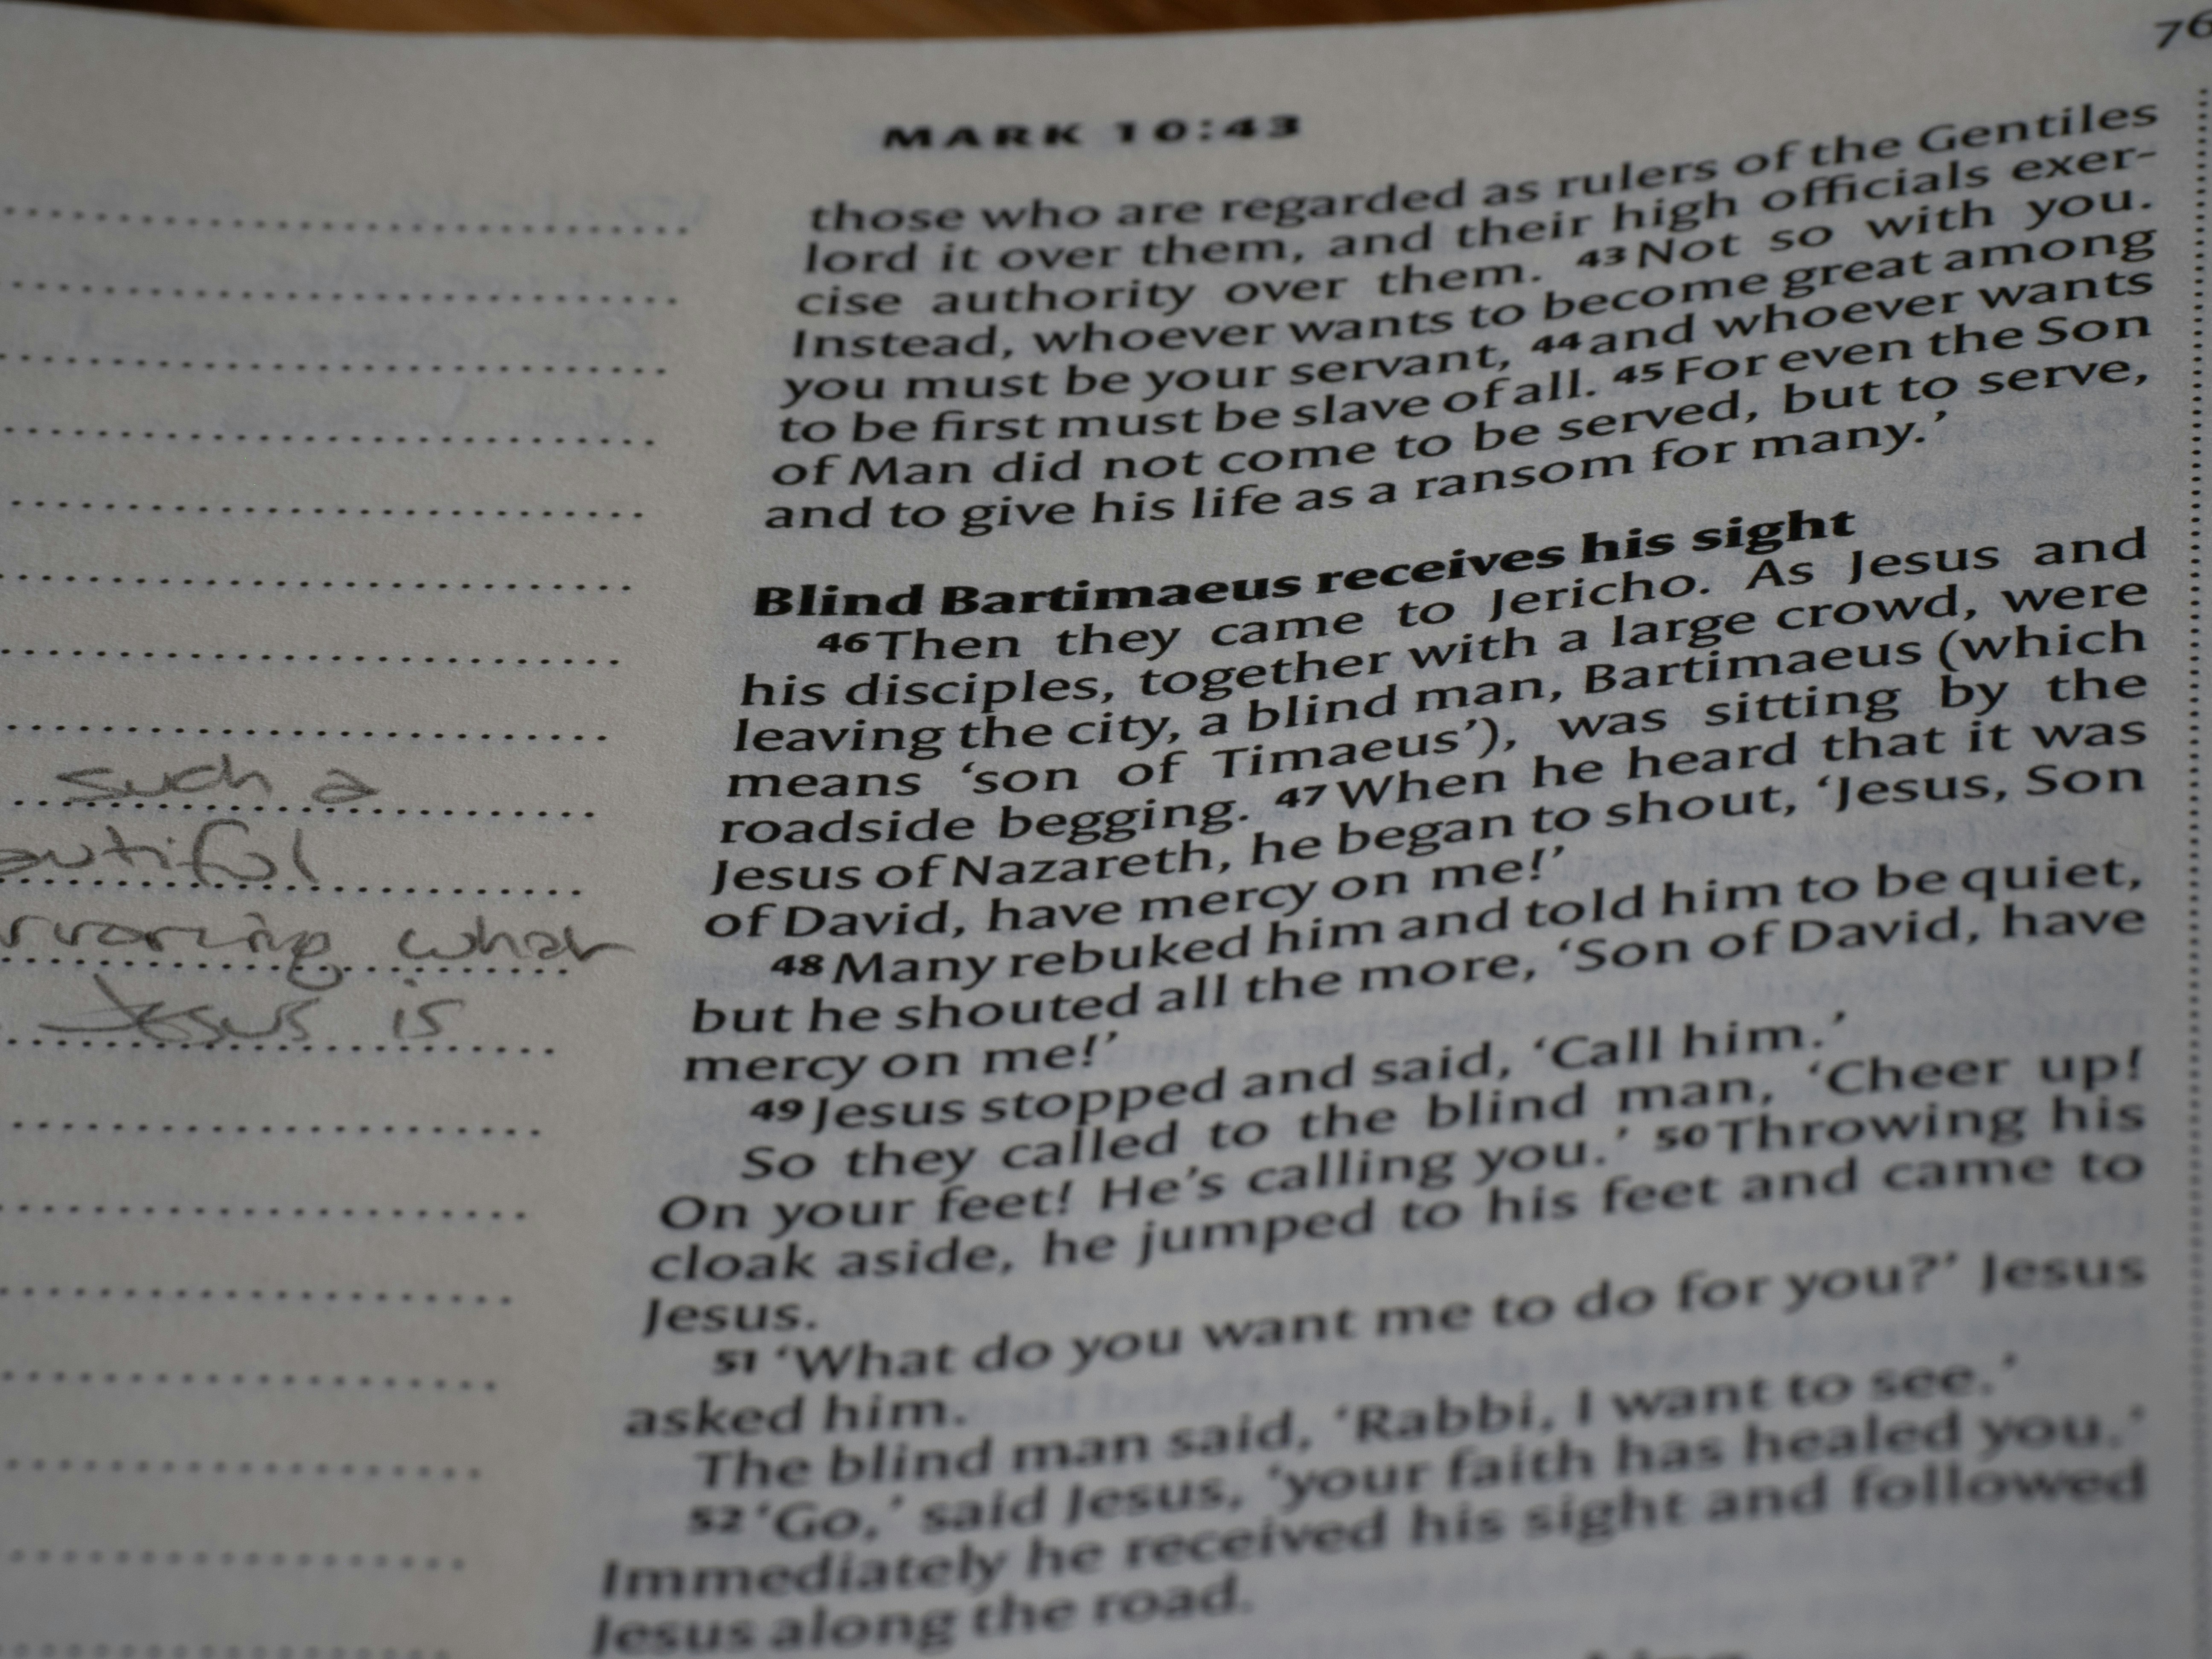 MARK 10:43
those who are regarded as rulers of the Gentiles
lord it over them, and their high officials exer-
cise authority over them. 43 Not so with you.
Instead, whoever wants to become great among
you must be your servant, 44 and whoever wants
to be first must be slave of all. 45 For even the Son
of Man did not come to be served, but to serve,
and to give his life as a ransom for many.’
Blind Bartimaeus receives his sight
46 Then they came to Jericho. As Jesus and
his disciples, together with a large crowd, were
leaving the city, a blind man, Bartimaeus (which
means ‘son of Timaeus’), was sitting by the
roadside begging. 47 When he heard that it was
Jesus of Nazareth, he began to shout, ‘Jesus, Son
of David, have mercy on me!’
48 Many rebuked him and told him to be quiet,
but he shouted all the more, ‘Son of David, have
mercy on me!’
49 Jesus stopped and said, ‘Call him.’
So they called to the blind man, ‘Cheer up!
On your feet! He’s calling you.’ 50 Throwing his
cloak aside, he jumped to his feet and came to
Jesus.
51 ‘What do you want me to do for you?’ Jesus
asked him.
The blind man said, ‘Rabbi, I want to see.’
52 ‘Go,’ said Jesus, ‘your faith has healed you.’
Immediately he received his sight and followed
Jesus along the road.
such a
autiful
what
Jesus is